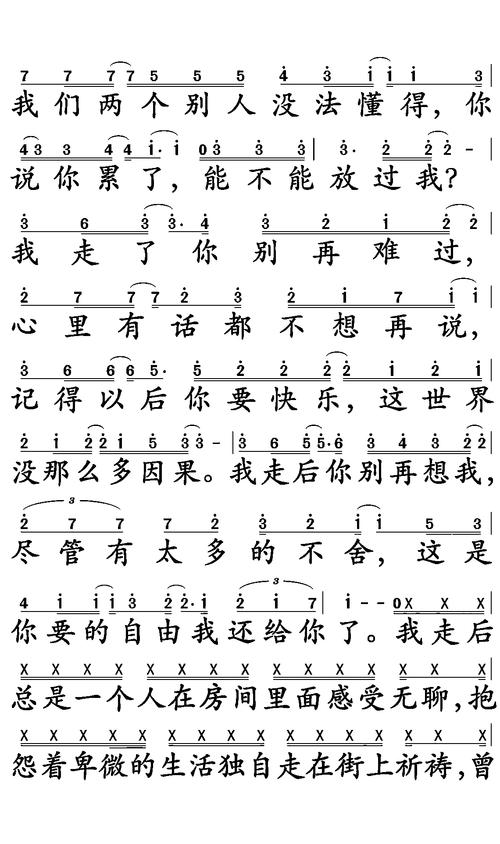 7 7 7 7 5 5 5 4 3 i i i i 3
我们两个别人没法懂得,你
4 3 3 4 4 i· i 0 3 3 3 | 3· 2 2 2 -
说你累了,能不能放过我?
3 6 3 3· 4 3 2 i 2 2
我走了你别再难过,
2 7 7 7 2 3 2 i 7 i i
心里有话都不想再说,
3 6 6 6 5· 5 2 2 2 2 i 2 i
记得以后你要快乐,这世界
2 i 2 2 i 5 3 3 - | 3 6 5 5·6 3 4 3 2 2
没那么多因果。我走后你别再想我,
2 7 7 7 2 3 2 i i 5 5
尽管有太多的不舍,这是
4 i i i 3 2 2· i 2 i 7 | i - - 0 X X X
你要的自由我还给你了。我走后
X X X X X X X X X X X X X X X
总是一个人在房间里面感受无聊,抱
X X X X X X X X X X X X X X X X
怨着卑微的生活独自走在街上祈祷,曾